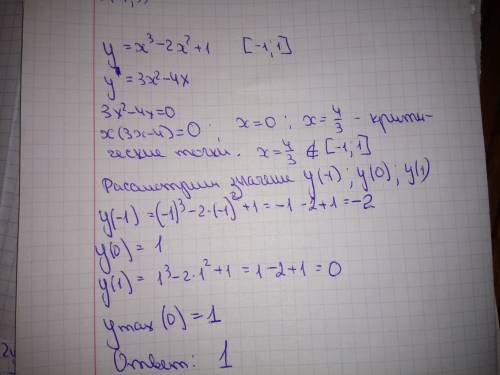 y = x³ - 2x² + 1 [-1; 1]
y' = 3x² - 4x
3x² - 4x = 0
x(3x - 4) = 0 ; x = 0 ; x = 4/3 - крити-
ческие точки. x = 4/3 ∉ [-1; 1]
Рассмотрим значение y(-1) ; y(0) ; y(1)
y(-1) = (-1)³ - 2·(-1)² + 1 = -1 - 2 + 1 = -2
y(0) = 1
y(1) = 1³ - 2·1² + 1 = 1 - 2 + 1 = 0
y max (0) = 1
Ответ: 1